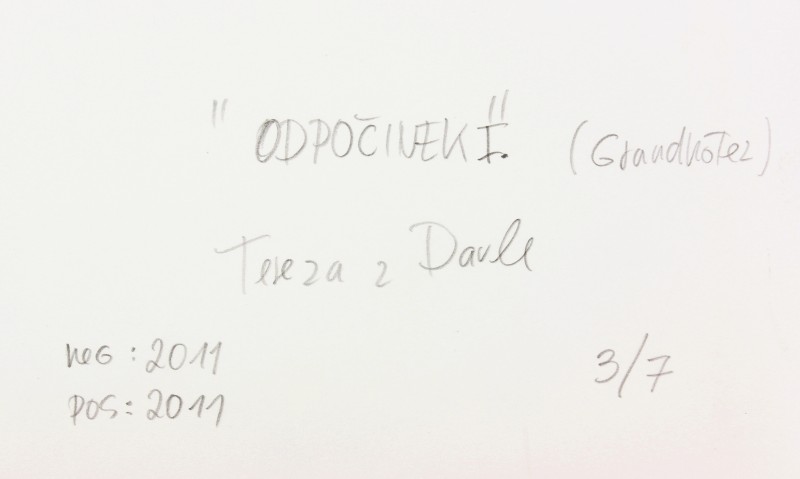 "ODPOČINEK I." (Grandhotel)
Tereza z Davle
neg: 2011
pos: 2011
3/7